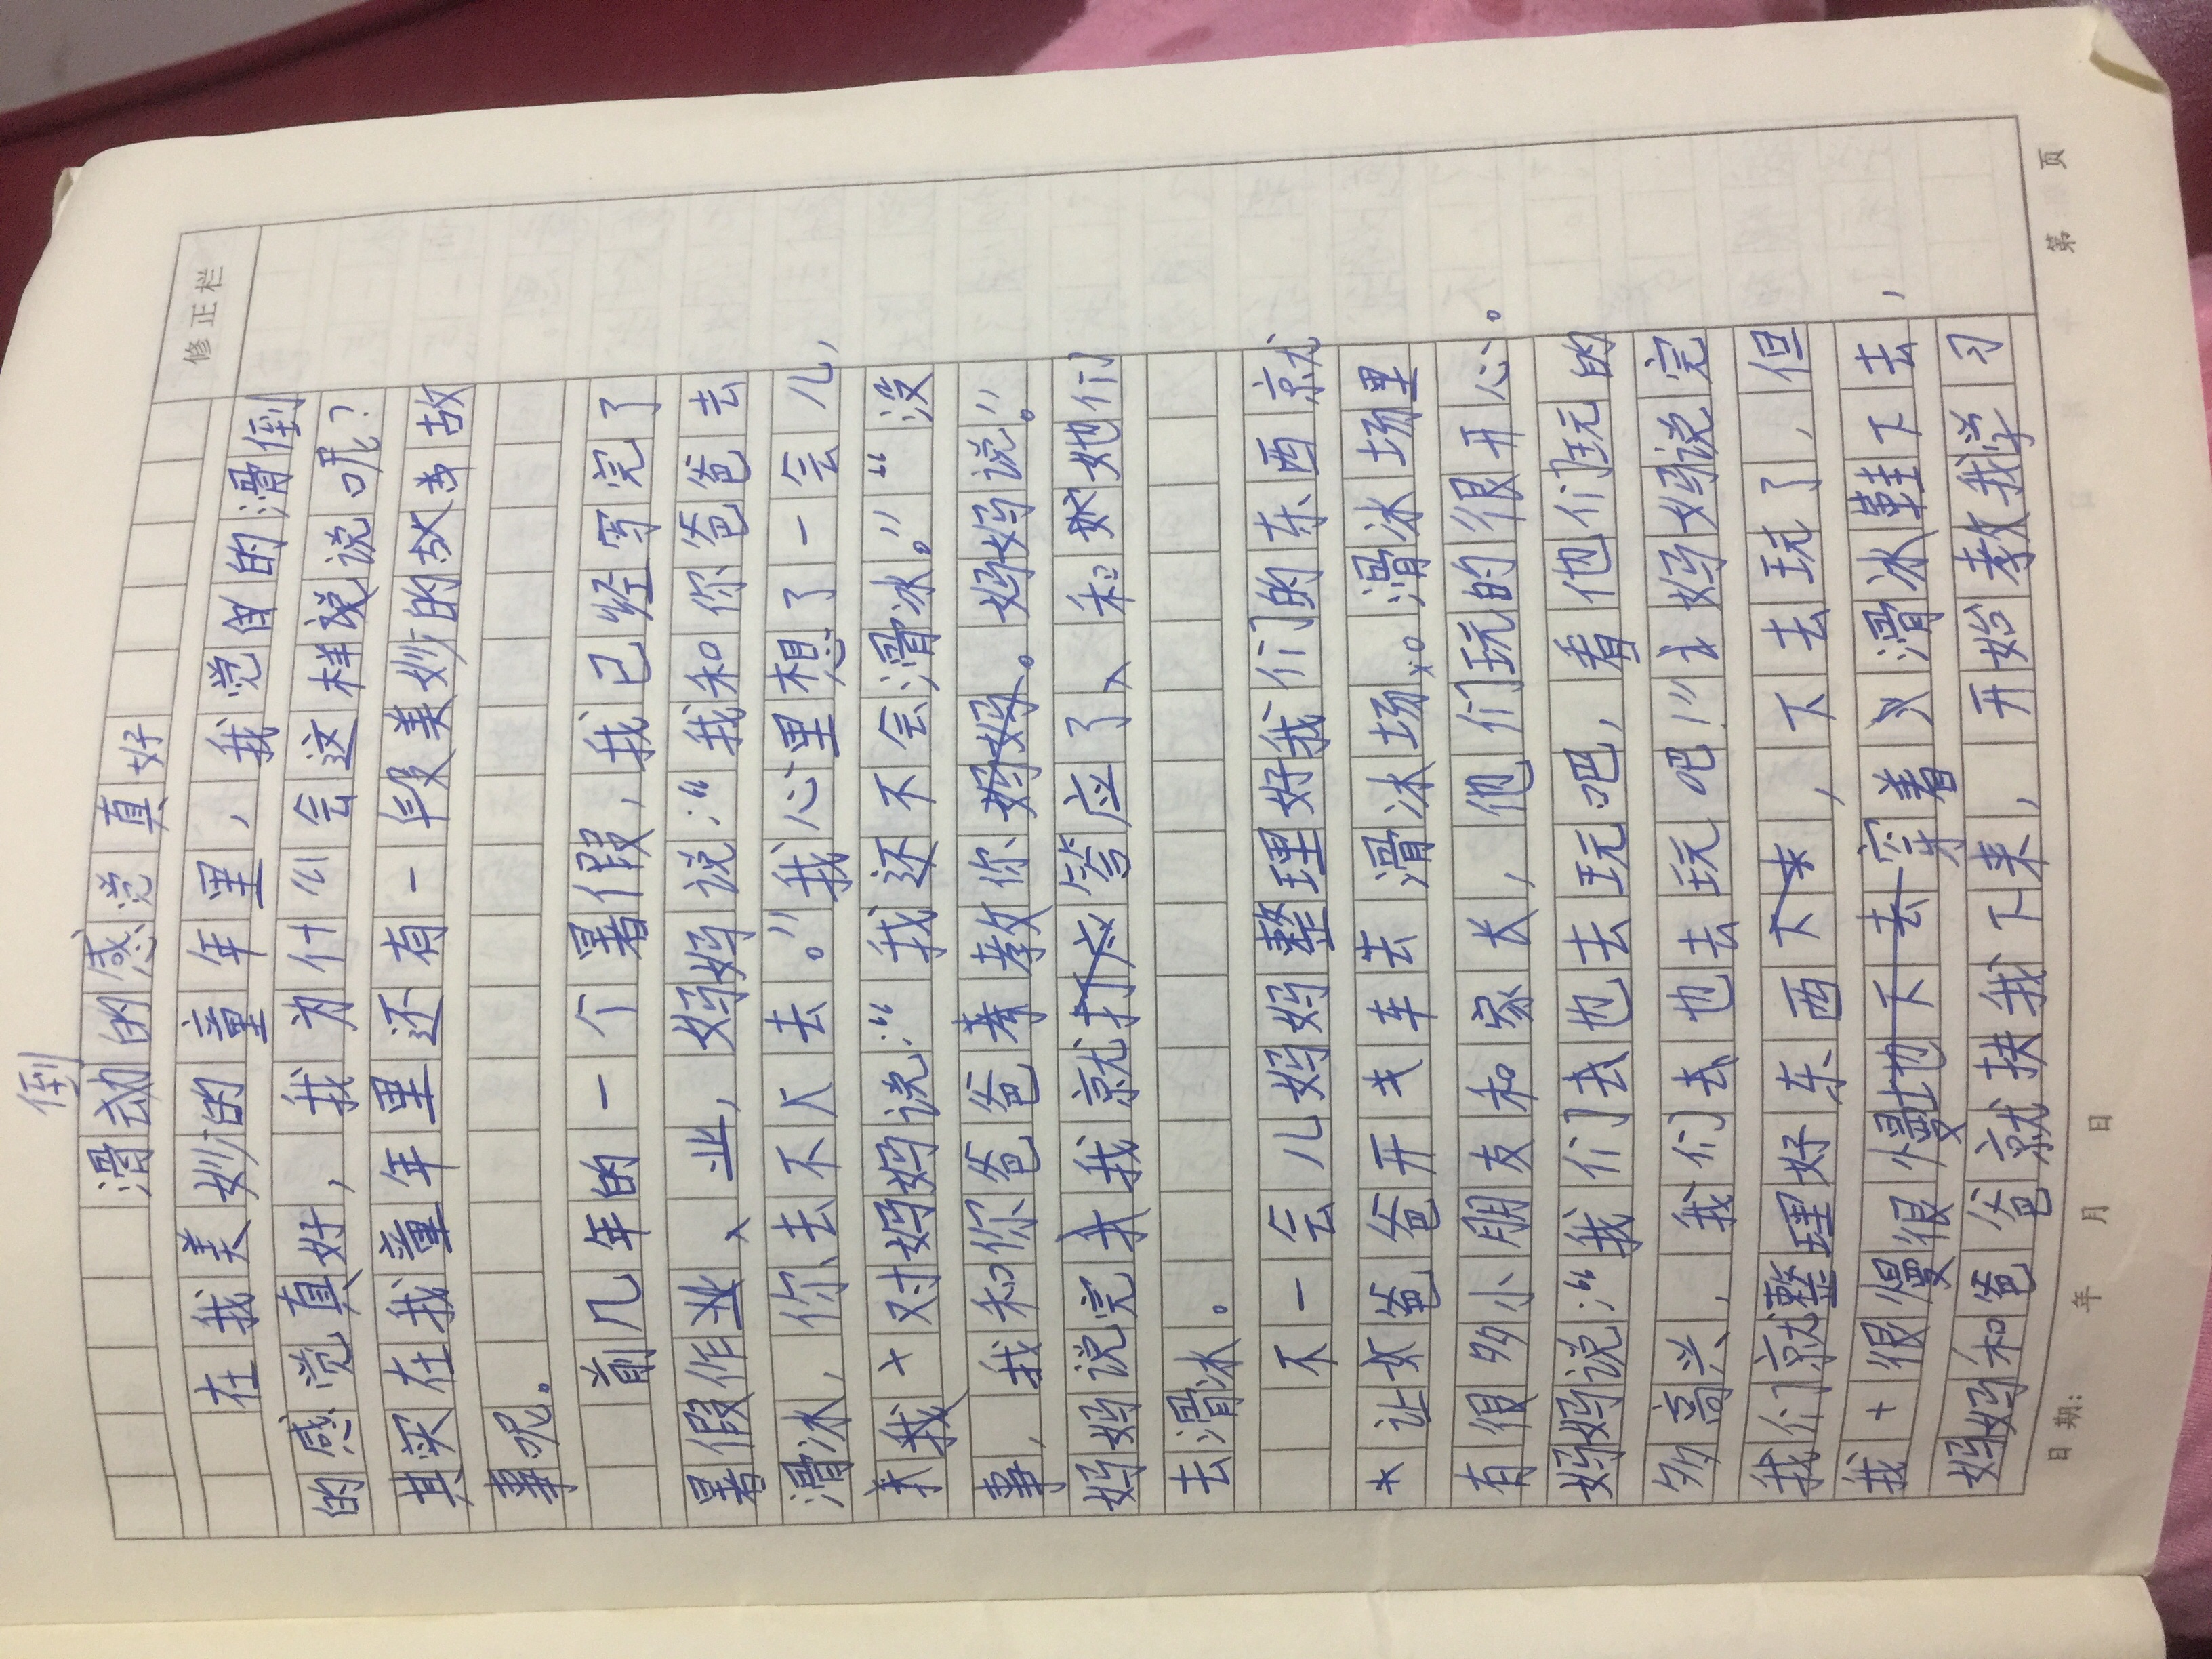 倒
滑动的感觉真好
修正栏
在我美妙的童年里，我觉的滑倒
的感觉真好，我为什么会这样说呢？
其实在我童年里还有一段美妙的故
事呢。
前几年的一个暑假，我已经写完了
暑假作业，妈妈说：“我和你爸爸去
滑冰，你去不去。”我心里想了一会儿，
我对妈妈说：“我还不会滑冰。”“没
事，我和你爸爸教你。妈妈说”。
妈妈说完我就答应了和她们
去滑冰。
不一会儿妈妈整理好我们的东西就
让爸爸开车去滑冰场。滑冰场里
有很多小朋友和家长，他们玩的很开心。
妈妈说：“我们去也去玩吧，看他们玩的
多高兴，我们去也去玩吧！”妈妈说完
我们就整理好东西，下去玩了，但
我很慢很慢地下去穿着滑冰鞋下去，
妈妈和爸爸就扶我下来，开始教我学习
日期：　年　月　日　第　页